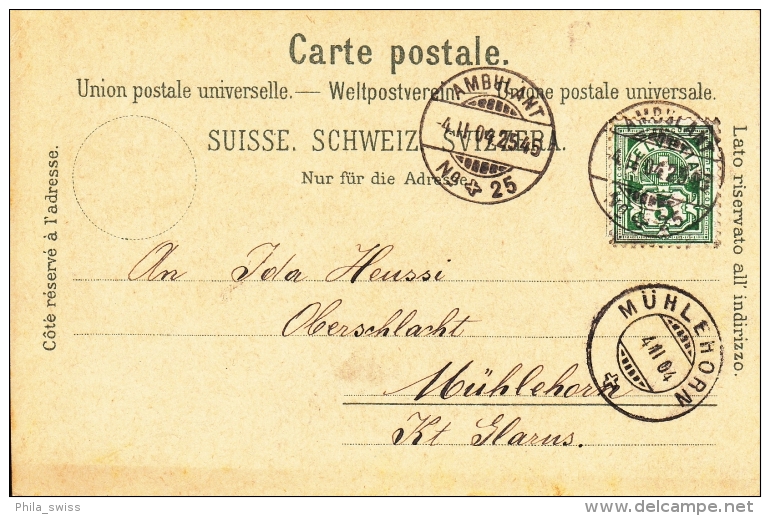 Carte postale.
Union postale universelle. — Weltpostverein. — Unione postale universale.
SUISSE. SCHWEIZ. SVIZZERA.
Nur für die Adresse.
Côté réservé à l'adresse.
Lato riservato all' indirizzo.
AMBULANT
4.II.04
No 25
AMBULANT
HELVETIA
5
An Ida Heussi
Oberschlacht
Mühlehorn
Kt Glarus.
MÜHLEHORN
4.II.04
Phila_swiss
delcampe.net